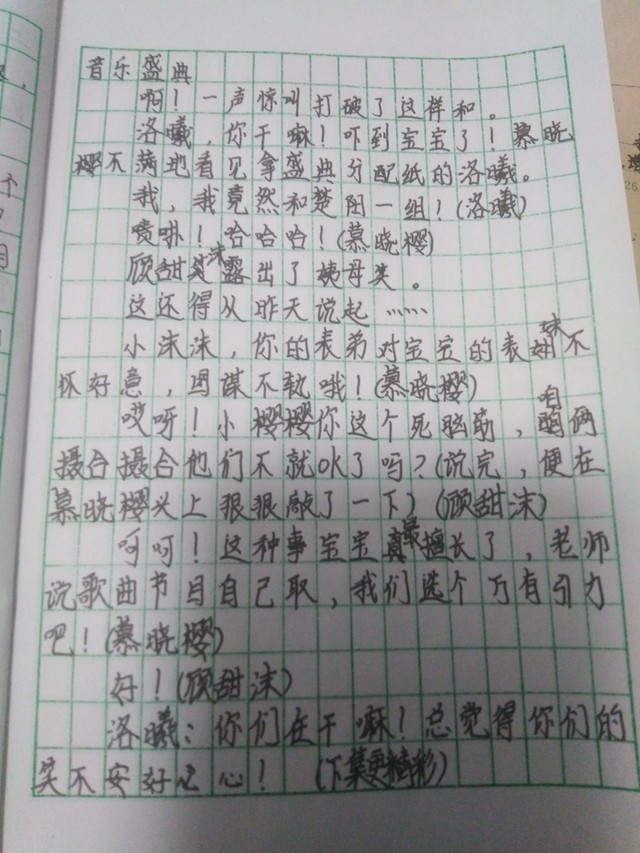 音乐盛典
啊！一声惊叫打破了这样和。
洛曦，你干嘛！吓到宝宝了！慕晓
樱不满地看见拿盛典分配纸的洛曦。
我，我竟然和楚阳一组！(洛曦)
喷啡！哈哈哈！(慕晓樱)
顾甜沫露出了姨母笑。
这还得从昨天说起……
小沫沫，你的表弟对宝宝的表妹不
怀好意，图谋不轨哦！(慕晓樱)
哎呀！小樱樱你这个死脑筋，咱俩
撮合撮合他们不就OK了吗？(说完，便在
慕晓樱头上狠狠敲了一下)(顾甜沫)
呵呵！这种事宝宝最擅长了，老师
说歌曲节目自己取，我们选个万有引力
吧！(慕晓樱)
好！(顾甜沫)
洛曦：你们在干嘛！总觉得你们的
笑不安好心！(下集更精彩)